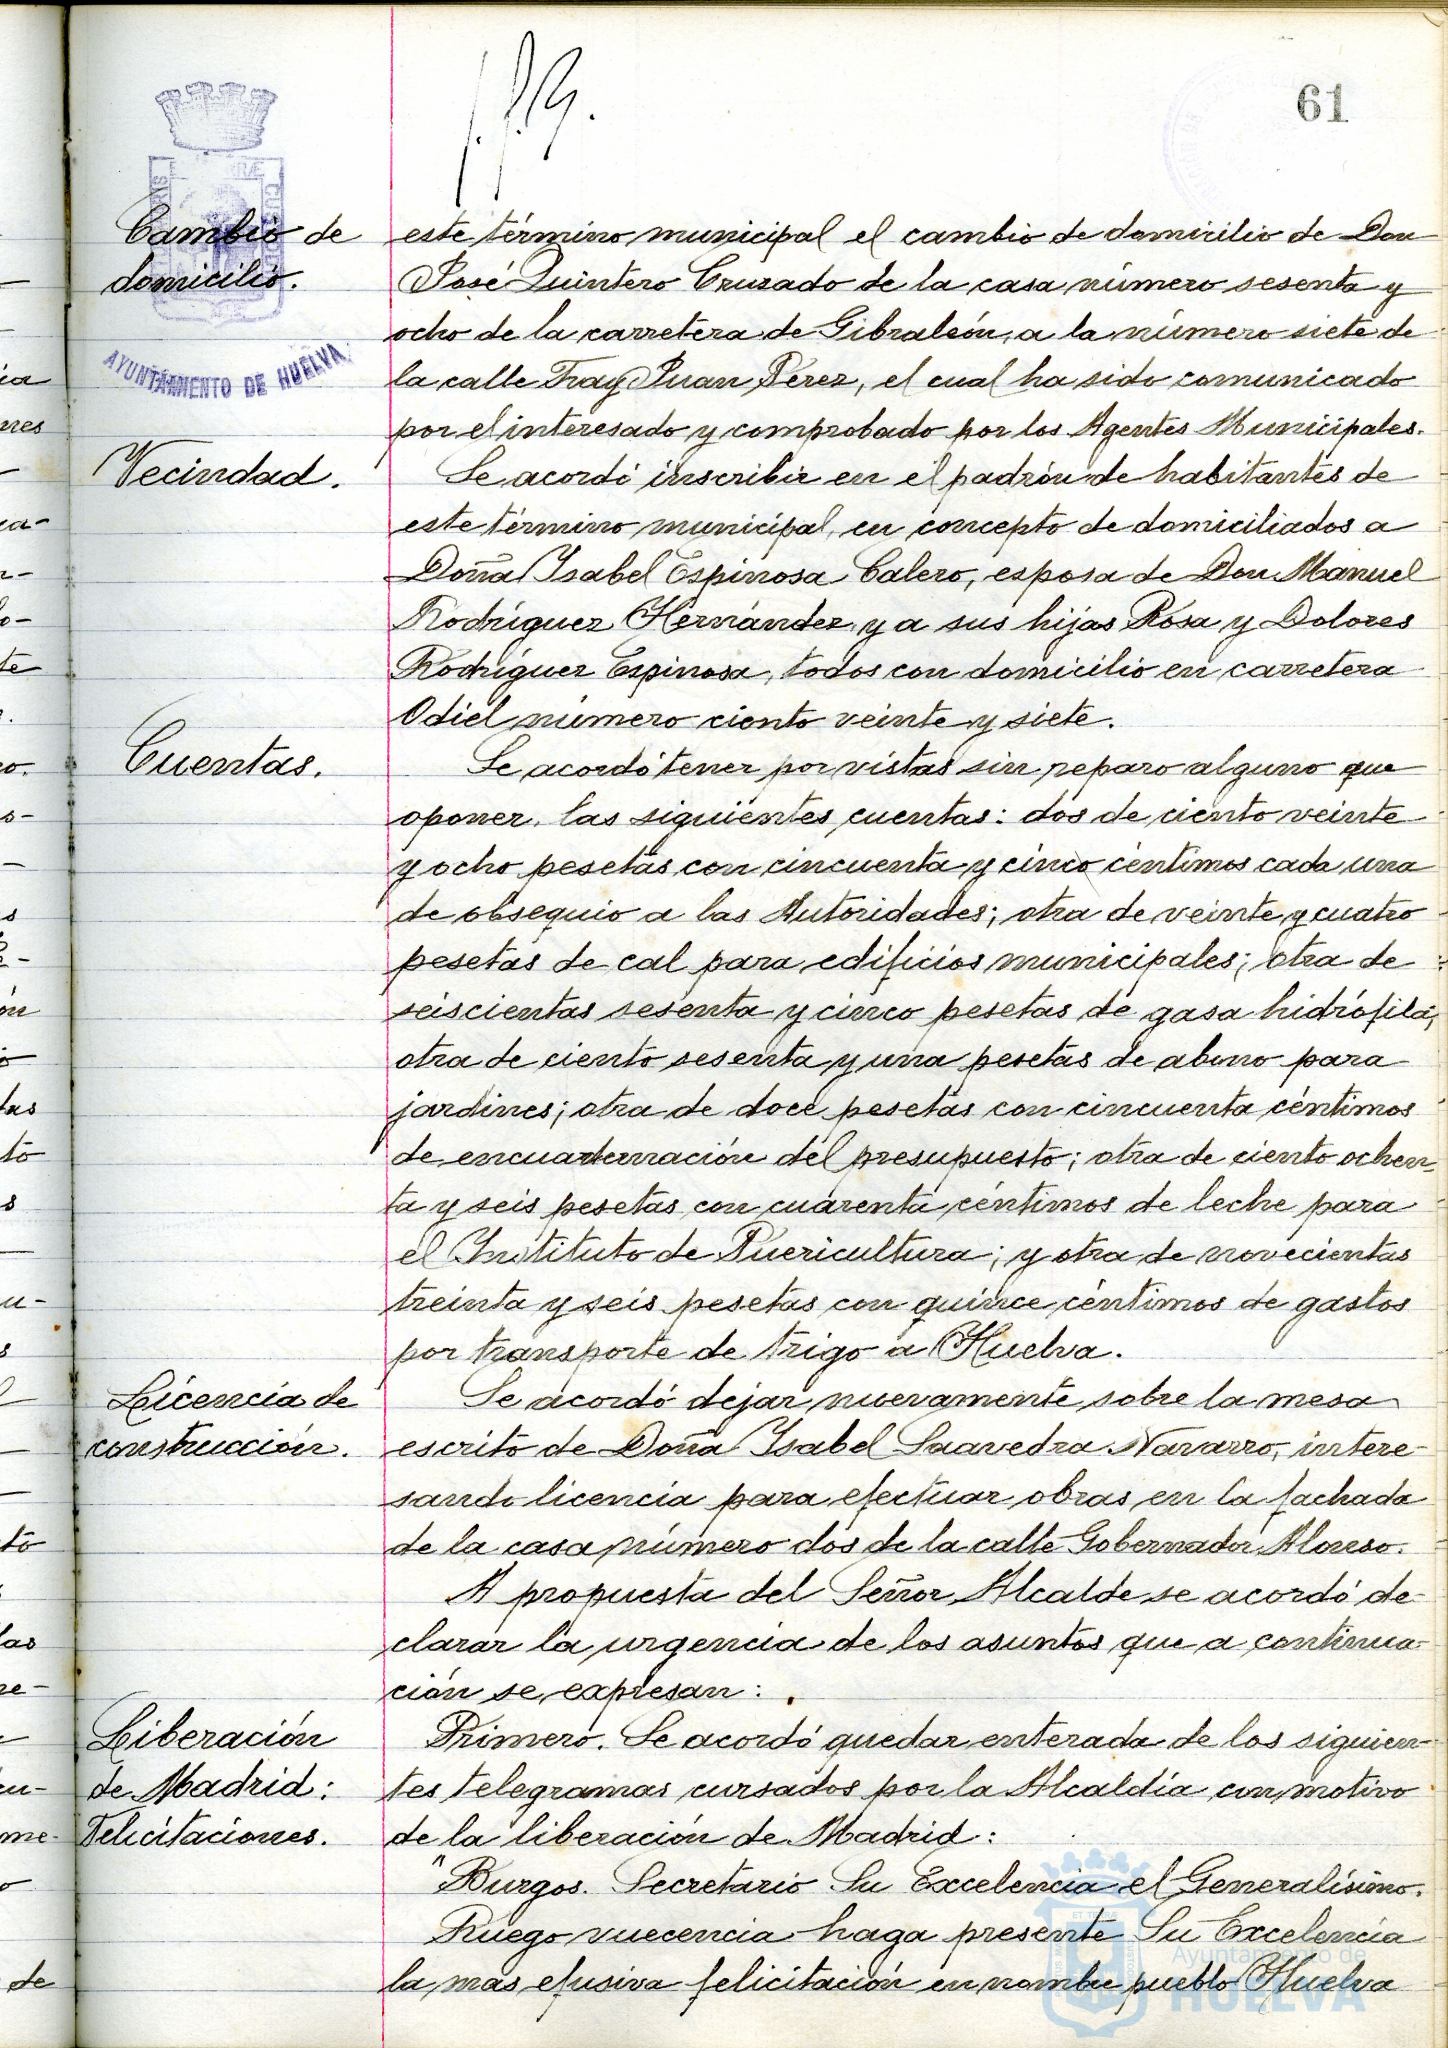 61
Cambio de
domicilio.
AYUNTAMIENTO DE HUELVA
este término municipal el cambio de domicilio de Don
José Quintero Cruzado de la casa número sesenta y
ocho de la carretera de Gibraleón, a la número siete de
la calle Fray Juan Pérez, el cual ha sido comunicado
por el interesado y comprobado por los Agentes Municipales.
Vecindad.
Se acordó inscribir en el padrón de habitantes de
este término municipal, en concepto de domiciliados a
Doña Isabel Espinosa Calero, esposa de Don Manuel
Rodríguez Hernández, y a sus hijas Rosa y Dolores
Rodríguez Espinosa, todos con domicilio en carretera
Odiel número ciento veinte y siete.
Cuentas.
Se acordó tener por vistas sin reparo alguno que
oponer, las siguientes cuentas: dos de ciento veinte
y ocho pesetas con cincuenta y cinco céntimos cada una
de obsequio a las Autoridades; otra de veinte y cuatro
pesetas de cal para edificios municipales; otra de
seiscientas sesenta y cinco pesetas de gasa hidrófila;
otra de ciento sesenta y una pesetas de abono para
jardines; otra de doce pesetas con cincuenta céntimos
de encuadernación del presupuesto; otra de ciento ochen-
ta y seis pesetas con cuarenta céntimos de leche para
el Instituto de Puericultura; y otra de novecientas
treinta y seis pesetas con quince céntimos de gastos
por transporte de trigo a Huelva.
Licencia de
construcción.
Se acordó dejar nuevamente sobre la mesa
escrito de Doña Isabel Saavedra Navarro, intere-
sando licencia para efectuar obras en la fachada
de la casa número dos de la calle Gobernador Alonso.
A propuesta del Señor Alcalde se acordó de-
clarar la urgencia de los asuntos que a continua-
ción se expresan:
Liberación
de Madrid:
Felicitaciones.
Primero. Se acordó quedar enterada de los siguien-
tes telegramas cursados por la Alcaldía con motivo
de la liberación de Madrid:
"Burgos. Secretario Su Excelencia el Generalísimo.
Ruego vuecencia haga presente Su Excelencia
la más efusiva felicitación en nombre pueblo Huelva
Ayuntamiento de
HUELVA